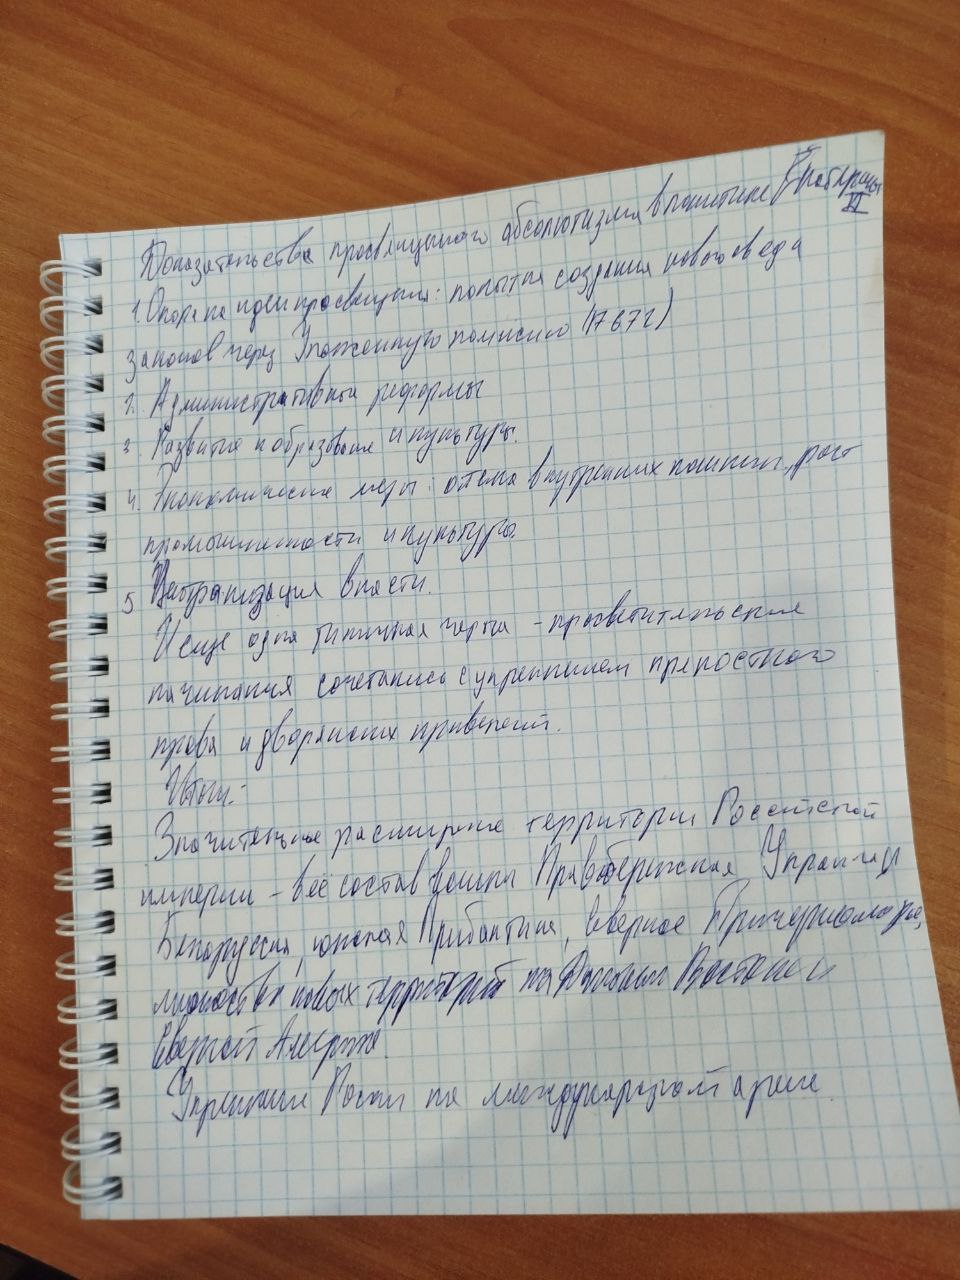 Доказательства просвещенного абсолютизма в политике Екатерины II
1. Опора на идеи просвещения: попытка создания нового свода
законов через Уложенную комиссию (1767г)
2. Административные реформы
3. Развитие и образование и культуры.
4. Экономические меры: отмена внутренних пошлин, рост
промышленности и культуры.
5 Централизация власти.
И еще одна типичная черта - просветительские
начинания сочетались с укреплением крепостного
права и дворянских привелегий.
Итоги:
Значительное расширение территории Российской
империи - в её состав вошли Правобережная Украина
Белоруссия, южная Прибалтика, Северное Причерноморье,
множество новых территорий на Дальнем Востоке и
Северной Америке.
Укрепление России на международной арене.